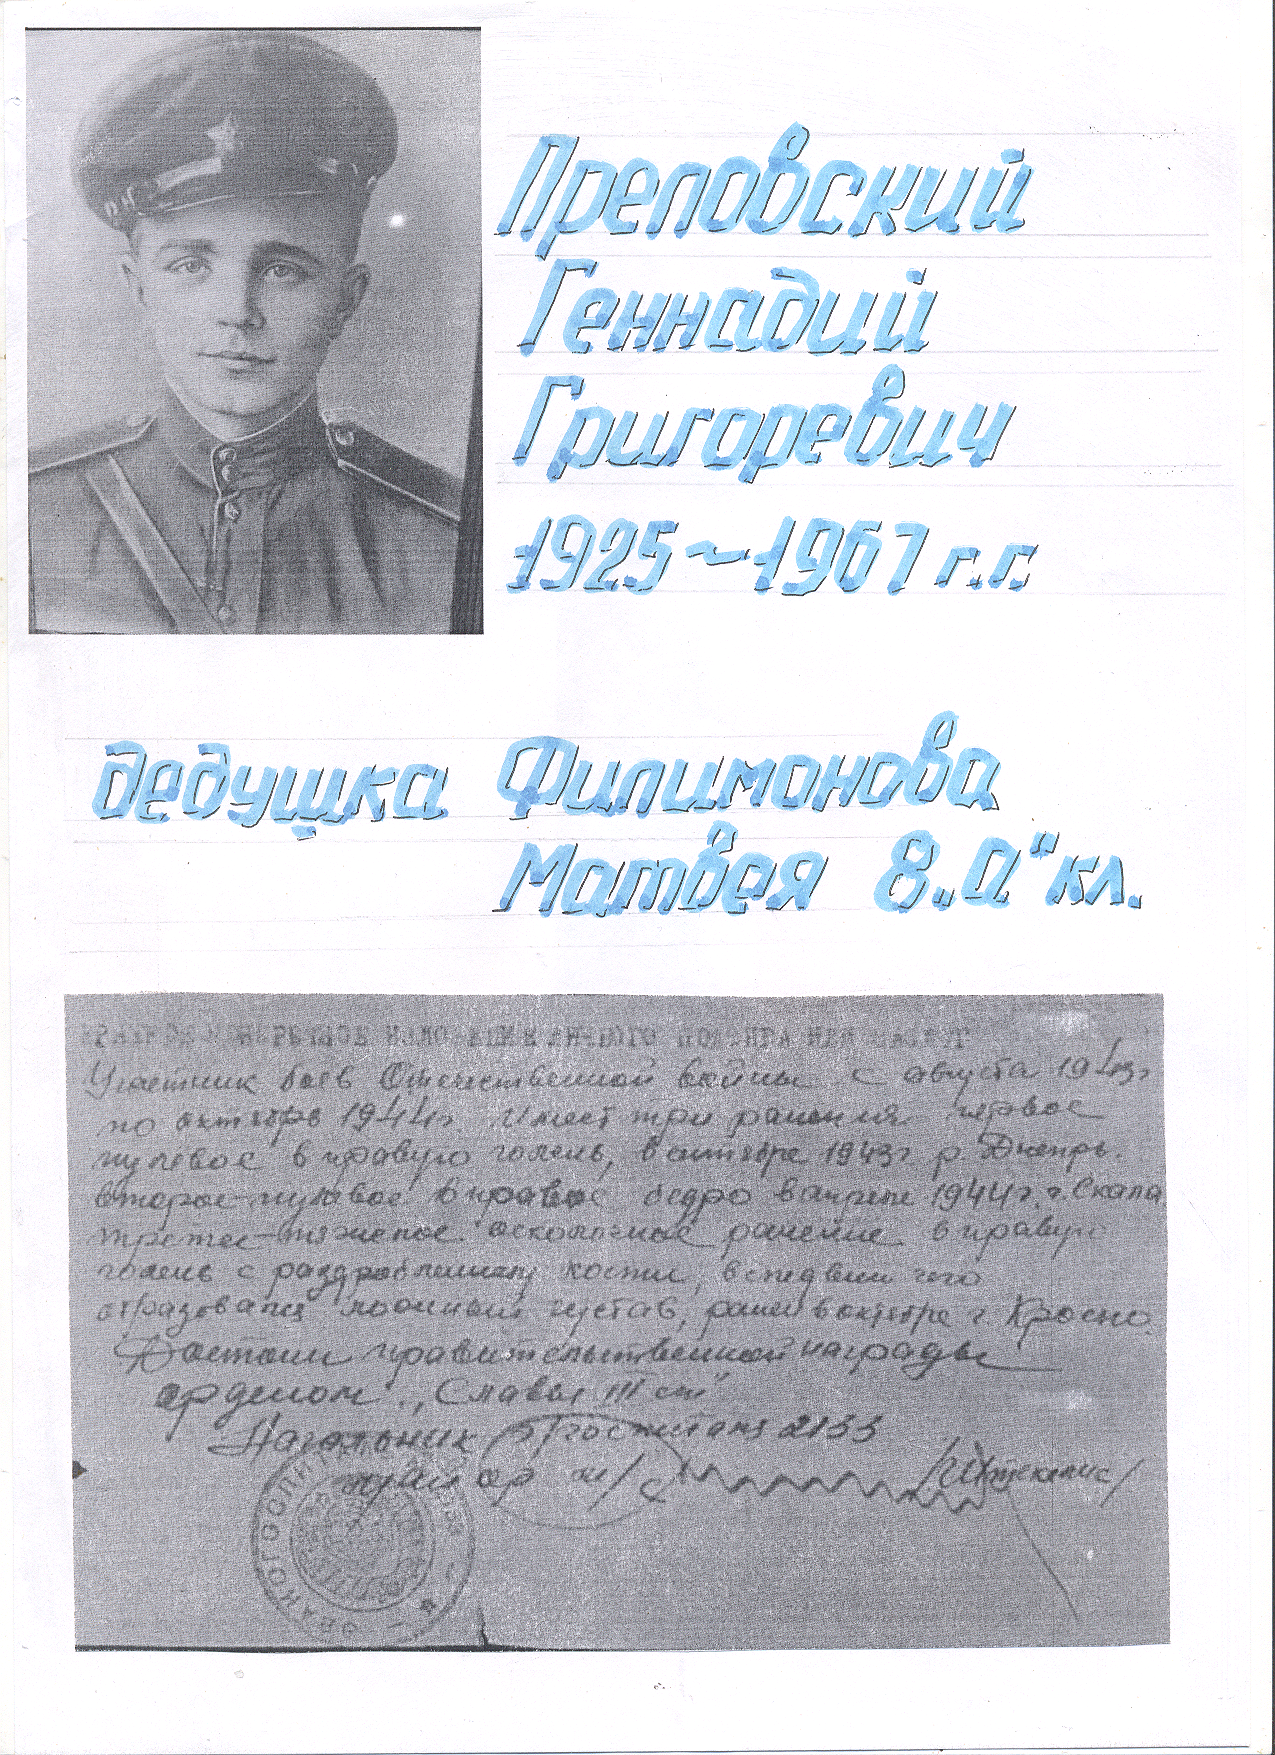 Преловский
Геннадий
Григоревич
1925~1967 г.г.
дедушка Филимонова
Матвея 8 „А" кл.
КРАТКОЕ КОНКРЕТНОЕ ИЗЛОЖЕНИЕ ЛИЧНОГО
Участник боёв Отечественной войны с августа 1943г
по октябрь 1944г. Имеет три ранения первое
пулевое в правую голень, в октябре 1943г р. Днепр.
второе-пулевое в правое бедро в апреле 1944г. г. Скала
третее-тяжелое осколочное ранение в правую
голень с раздроблением кости, вследвии чего
образовался ложный сустав, ранен в октябре г. Кросно.
Достоин правительственной награды
орденом „Славы III ст"
Начальник Госпиталя 2133
майор м/с